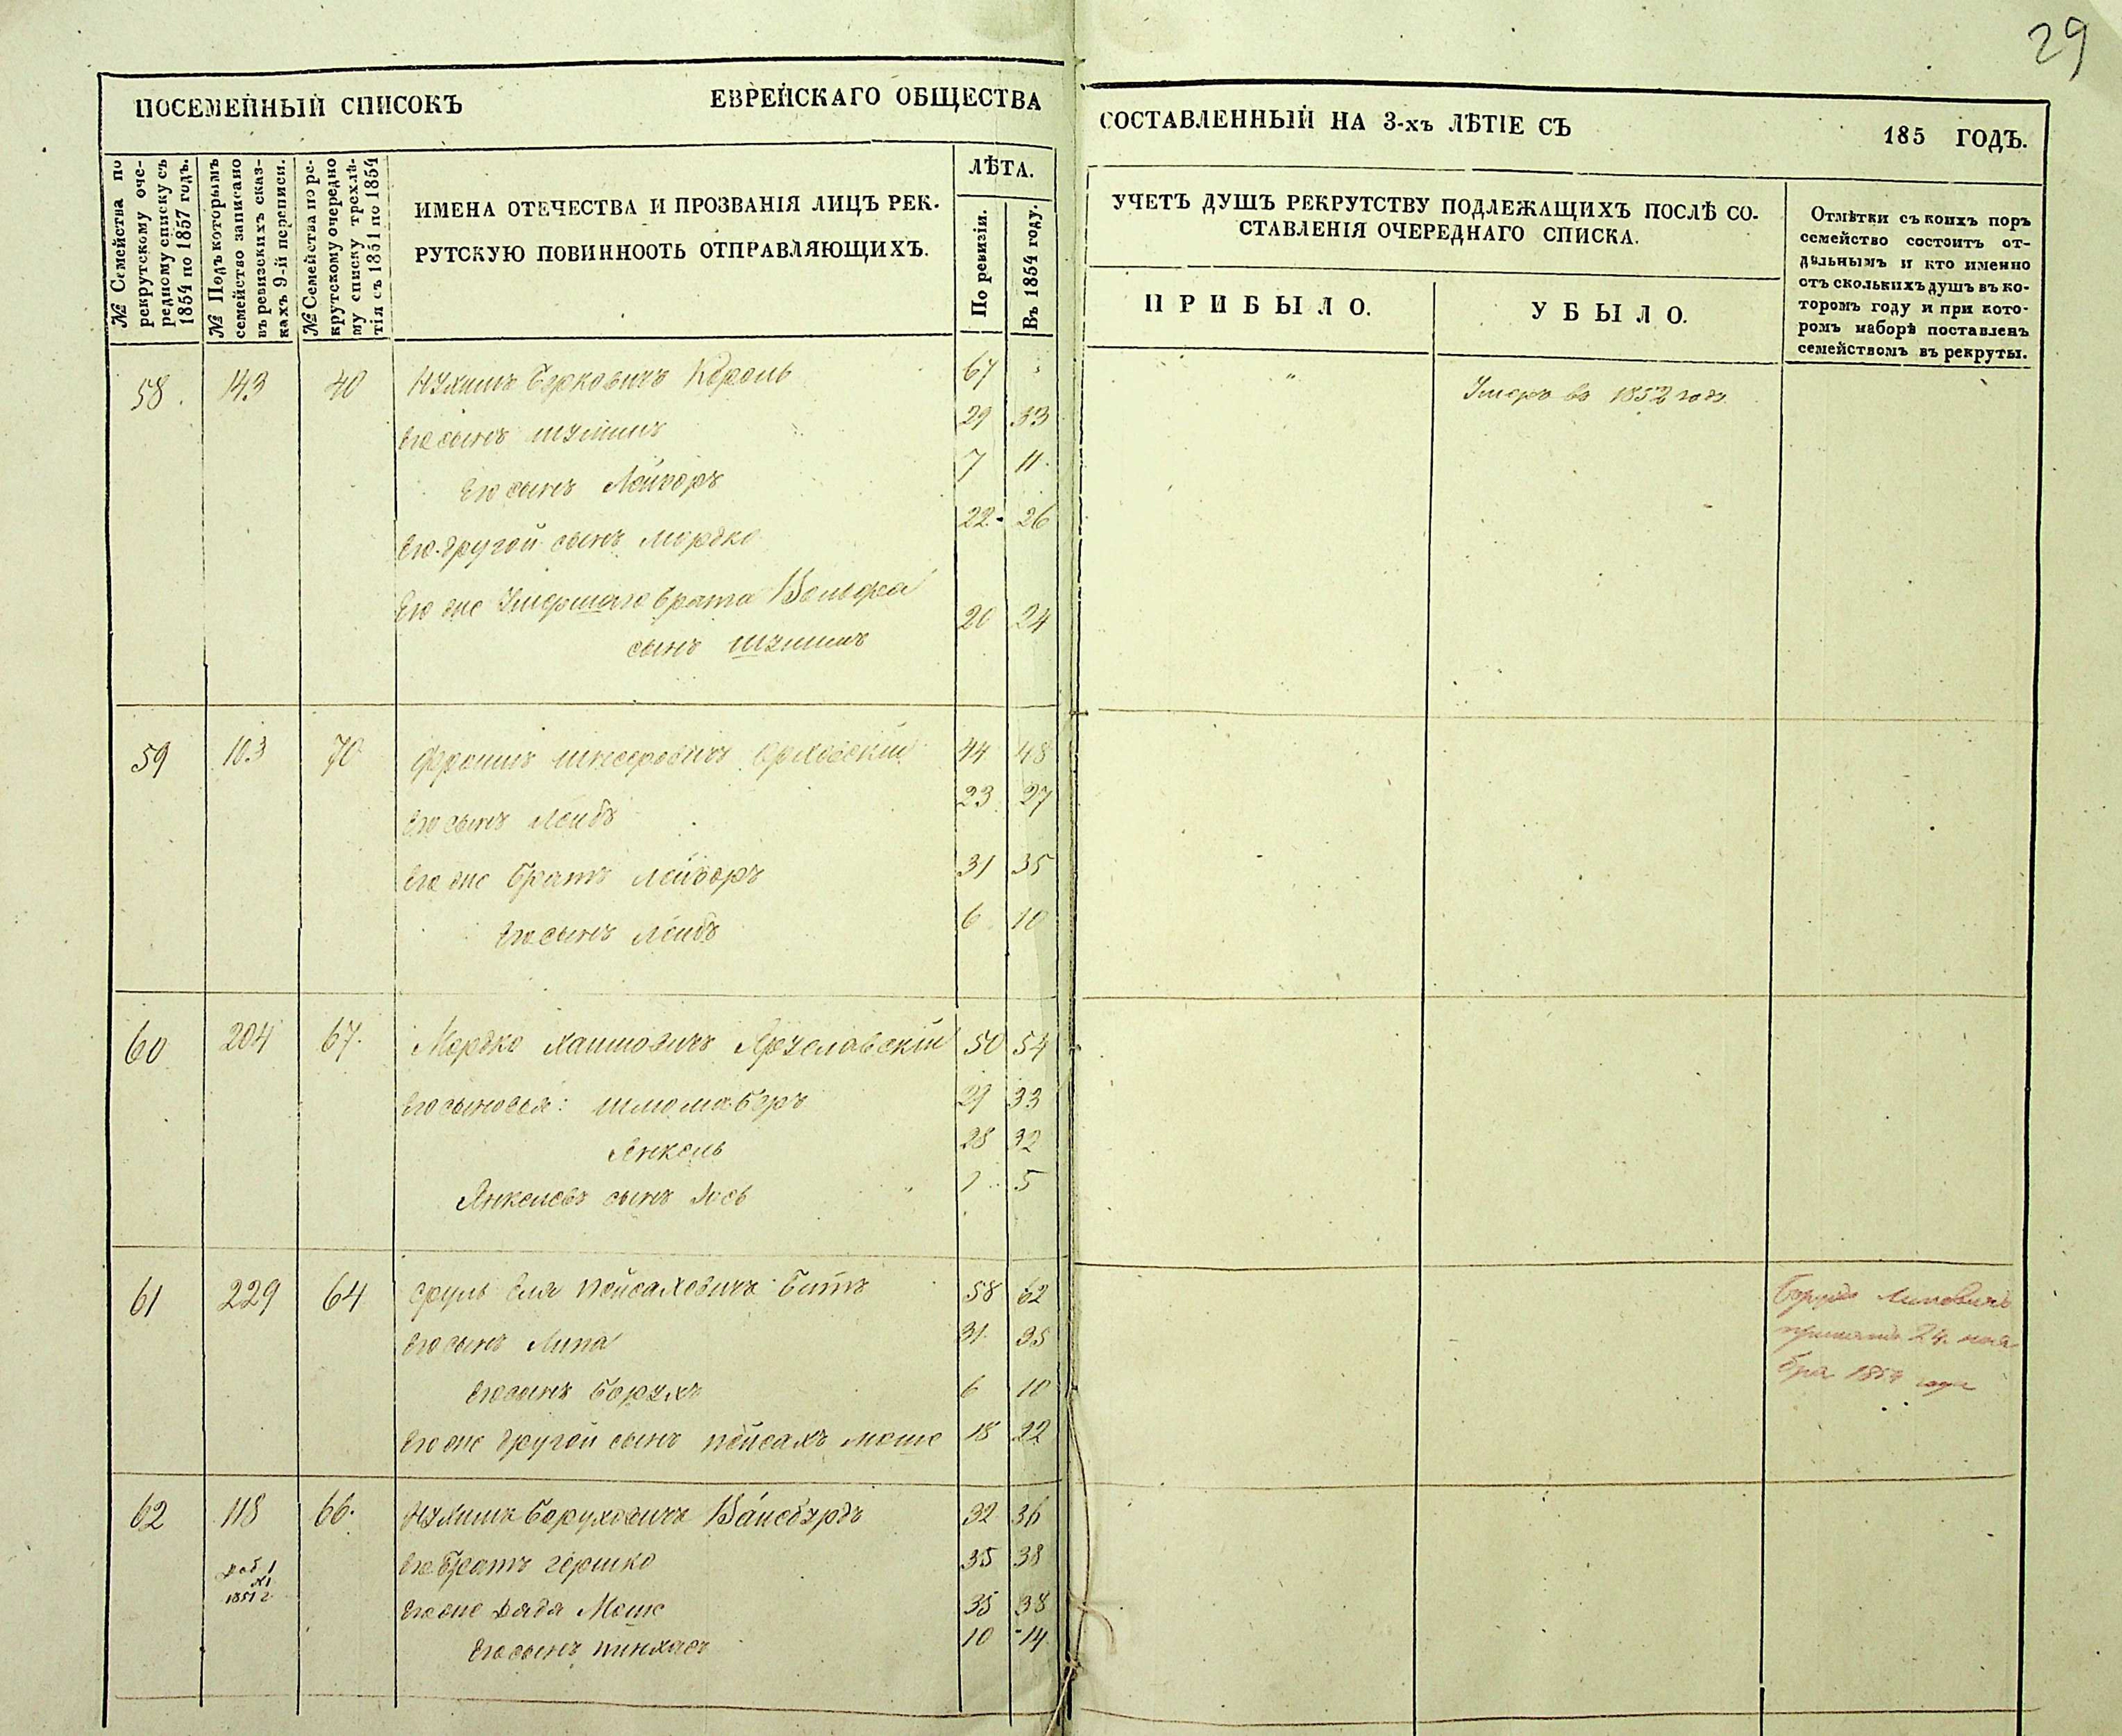 29
ПОСЕМЕЙНЫЙ СПИСОКЪ ЕВРЕЙСКАГО ОБЩЕСТВА
СОСТАВЛЕННЫЙ НА 3-хъ ЛѢТІЕ СЪ 185 ГОДЪ.
№ Семейства по
рекрутскому оче-
редному списку съ
1854 по 1857 годъ.
№ Подъ которымъ
семейство записано
въ ревизскихъ сказ-
кахъ 9-й переписи.
№ Семейства по ре-
крутскому очередно
му списку трехлѣ-
тія съ 1851 по 1854
ИМЕНА ОТЕЧЕСТВА И ПРОЗВАНІЯ ЛИЦЪ РЕК-
РУТСКУЮ ПОВИННООТЬ ОТПРАВЛЯЮЩИХЪ.
ЛѢТА.
По ревизіи.
Въ 1854 году.
УЧЕТЪ ДУШЪ РЕКРУТСТВУ ПОДЛЕЖАЩИХЪ ПОСЛѢ СО-
СТАВЛЕНІЯ ОЧЕРЕДНАГО СПИСКА.
ПРИБЫЛО.
УБЫЛО.
Отмѣтки съ коихъ поръ
семейство состоитъ от-
дѣльнымъ и кто именно
отъ сколькихъ душъ въ ко-
торомъ году и при кото-
ромъ наборѣ поставленъ
семействомъ въ рекруты.
58. 143 40 Нухимъ Берковичъ Король 67 " Умеръ въ 1852 году
Его сынъ Шулимъ 29 33
Его сынъ Лейзоръ 7 11
Его другой сынъ Мордко 22 26
Его же Умершаго брата Вольфа
сынъ Шулимъ 20 24
59 103 70 Фроимъ 44 48
Его сынъ Лейбъ 23 27
Его же братъ Лейзоръ 31 35
Его сынъ Лейбъ 6 10
60 204 67. Мордко Хаимовичъ Яруславскій 50 54
Его сыновья: Шлома Беръ 29 33
Янкель 28 32
Янкелевъ сынъ Іось 1 5
61 229 64 Сруль Еля Пейсаховичъ 58 62
Его сынъ Липа 31 35
Его сынъ Борухъ 6 10
Его же другой сынъ Пейсахъ Моше 18 22
Борухъ Липовичъ
принятъ 24 ноя
бря 1854 года
62 118 66. Нухимъ Боруховичъ Вайсбурдъ 32 36
Его братъ Гершко 35 38
Его же дядя Моше 35 38
Его сынъ Пинхасъ 10 14
1851 г.